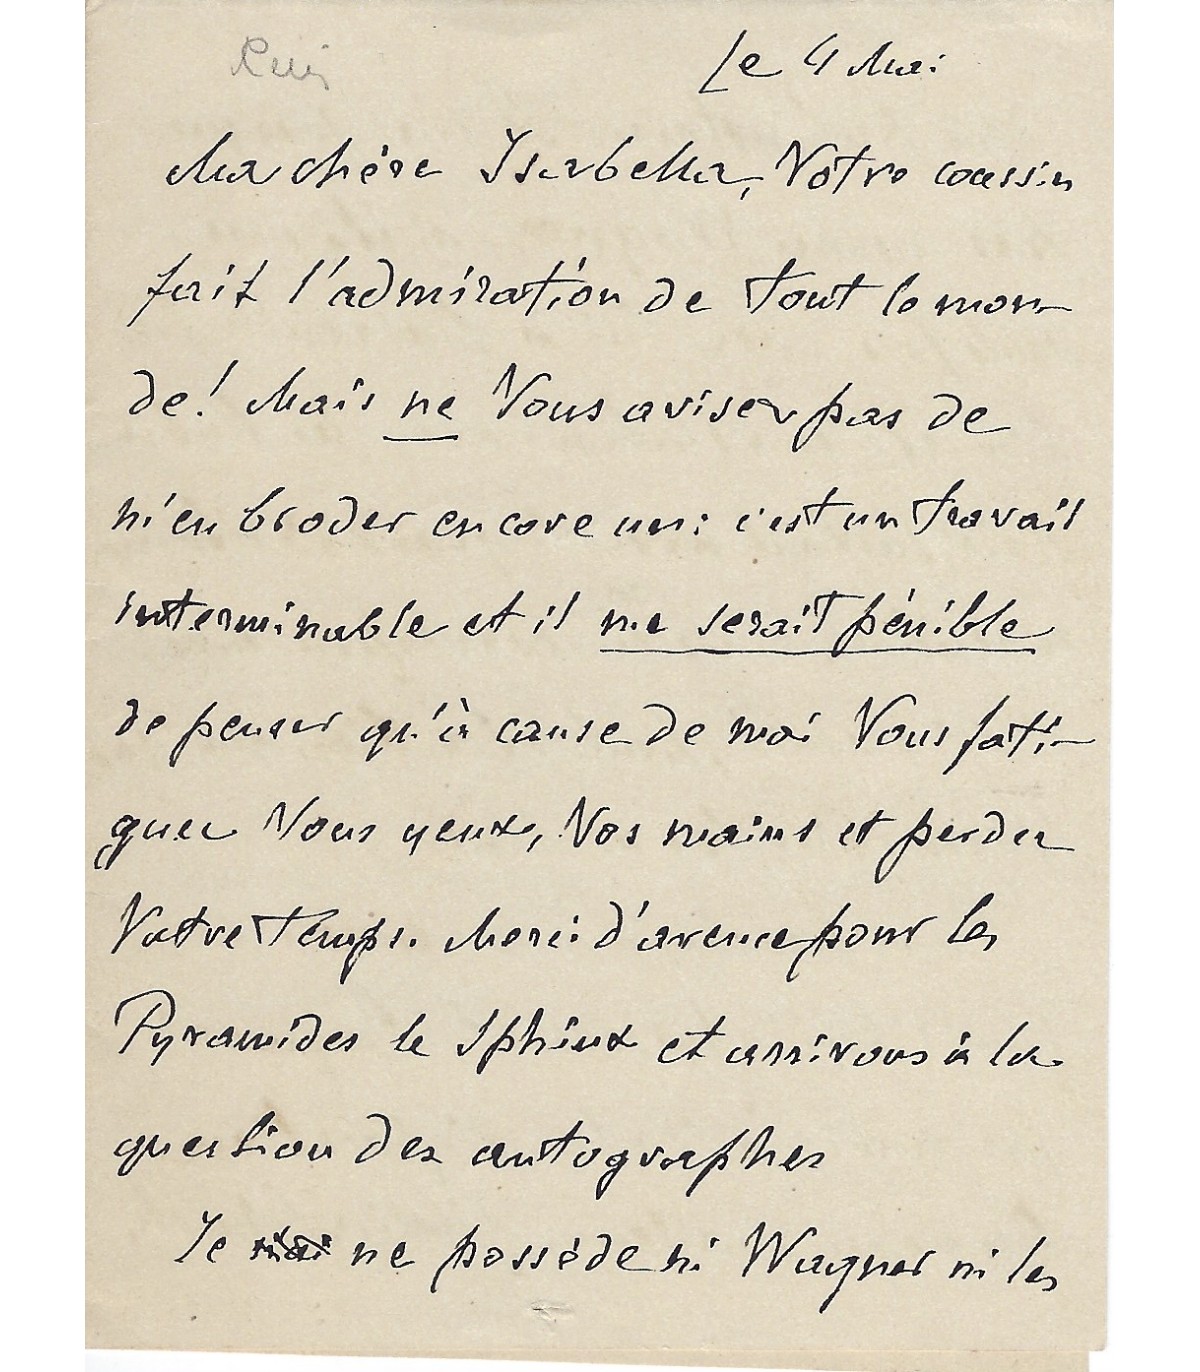 Le 4 Mai
Ma chère Isabella, Votre coussin
fait l'admiration de tout le mon-
de! Mais ne Vous aviser pas de
m'en broder encore un: c'est un travail
interminable et il me serait pénible
de penser qu'à cause de moi Vous fati-
guer Vous yeux, Vos mains et perder
Votre temps. Merci d'avance pour les
Pyramides le Sphinx et arrivons à la
question des autographes
Je ne possède ni Wagner ni les